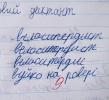 вий диктант
велосипедист
велосипедист
велосипедис
вуйко на ровері